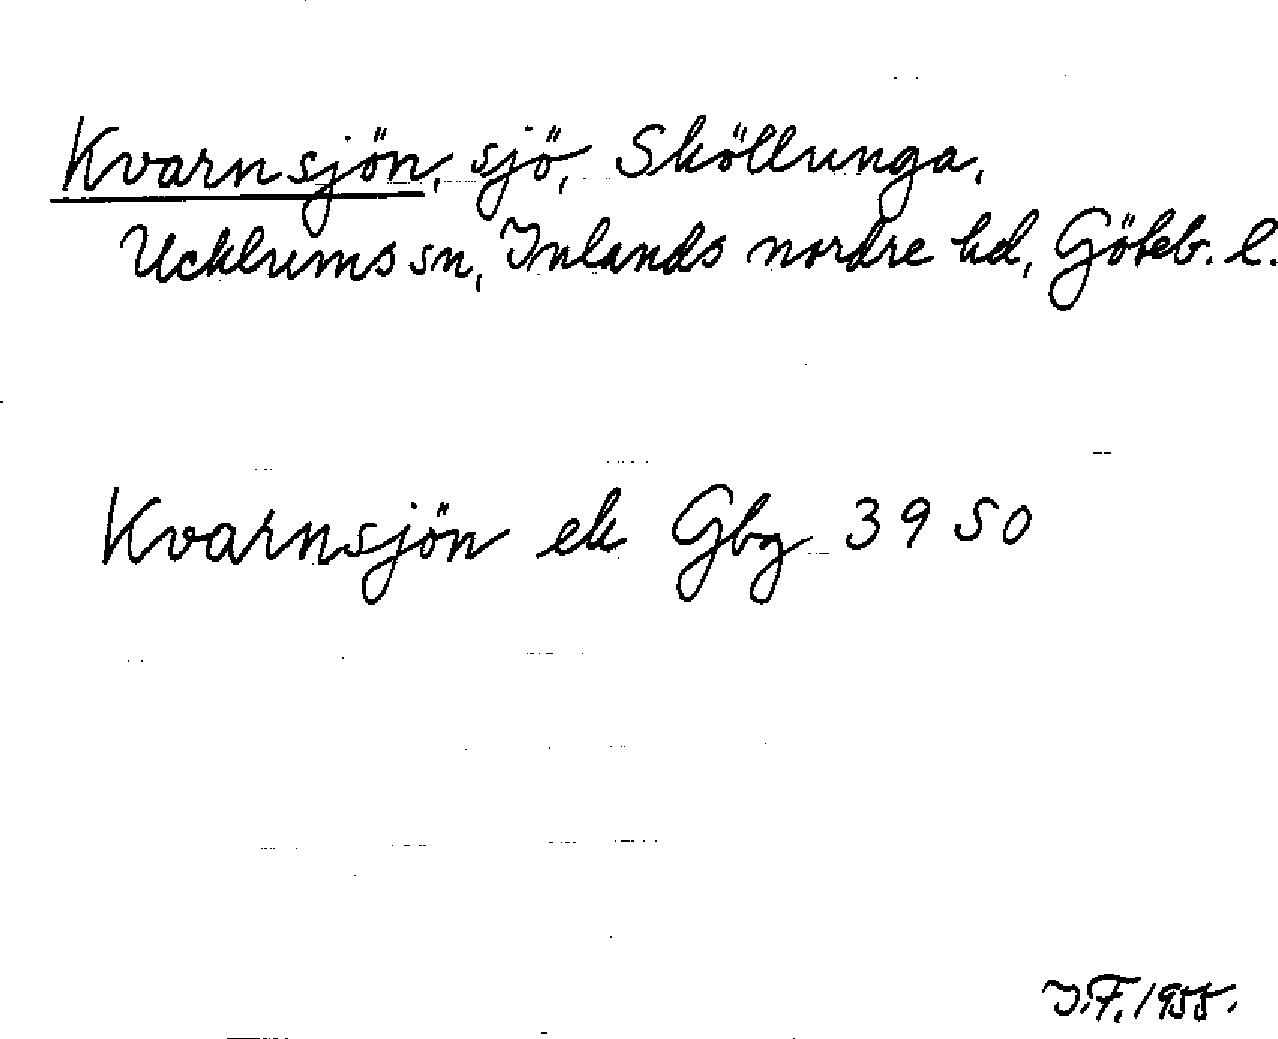 Kvarnsjön, sjö, Sköllunga,
Ucklums sn, Inlands nordre hd, Göteb. l.
Kvarnsjön ek Gbg 3950
I.F. 1955.